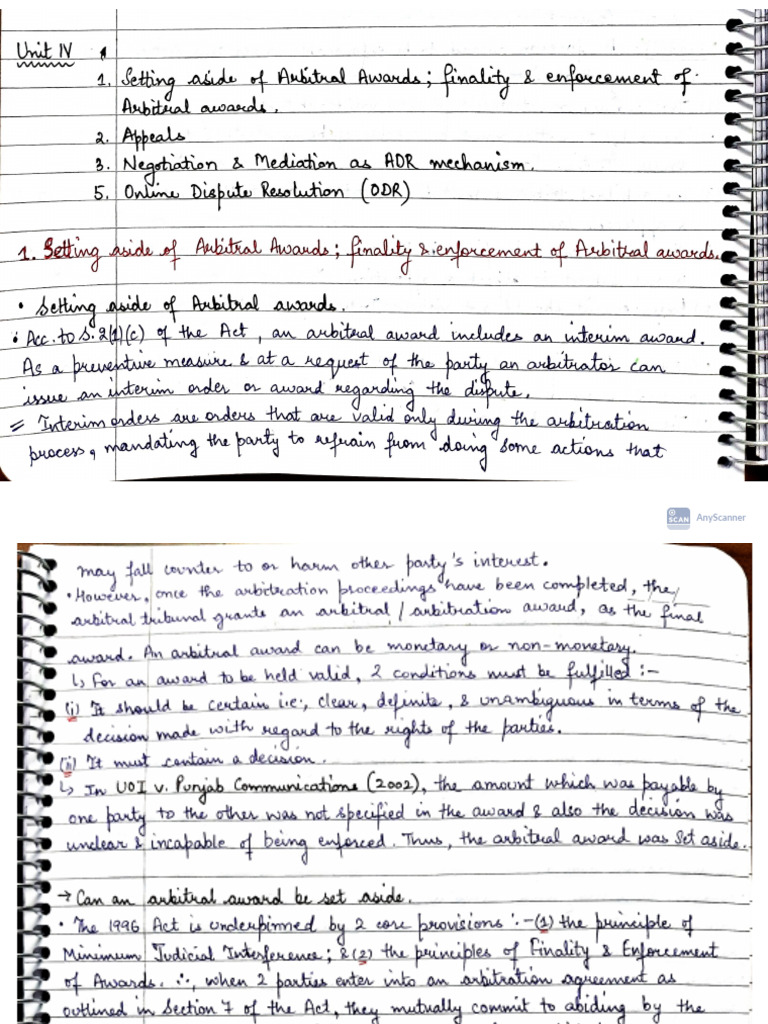 Unit IV
1. Setting aside of Arbitral Awards; finality & enforcement of
Arbitral awards.
2. Appeals
3. Negotiation & Mediation as ADR mechanism.
5. Online Dispute Resolution (ODR)
1. Setting aside of Arbitral Awards; finality & enforcement of Arbitral awards.
• Setting aside of Arbitral awards.
• Acc. to S. 2(1)(c) of the Act, an arbitral award includes an interim award.
As a preventive measure & at a request of the party an arbitrator can
issue an interim order or award regarding the dispute.
= Interim orders are orders that are valid only during the arbitration
process, mandating the party to refrain from doing some actions that
SCAN AnyScanner
may fall counter to or harm other party's interest.
• However, once the arbitration proceedings have been completed, the
arbitral tribunal grants an arbitral / arbitration award, as the final
award. An arbitral award can be monetary or non-monetary.
↳ For an award to be held valid, 2 conditions must be fulfilled :-
(i) It should be certain i.e., clear, definite, & unambiguous in terms of the
decision made with regard to the rights of the parties.
(ii) It must contain a decision.
↳ In UOI v. Punjab Communications (2002), the amount which was payable by
one party to the other was not specified in the award & also the decision was
unclear & incapable of being enforced. Thus, the arbitral award was set aside.
→ Can an arbitral award be set aside.
• The 1996 Act is underpinned by 2 core provisions :- (1) the principle of
Minimum Judicial Interference; & (2) the principles of Finality & Enforcement
of Awards. ∴, when 2 parties enter into an arbitration agreement as
outlined in Section 7 of the Act, they mutually commit to abiding by the